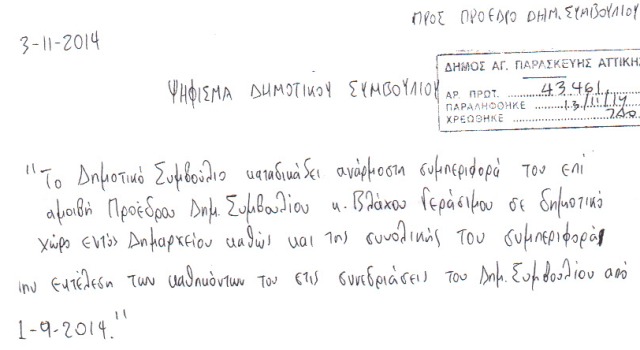 ΠΡΟΣ ΠΡΟΕΔΡΟ ΔΗΜ. ΣΥΜΒΟΥΛΙΟΥ
3-11-2014
ΔΗΜΟΣ ΑΓ. ΠΑΡΑΣΚΕΥΗΣ ΑΤΤΙΚΗΣ
ΑΡ. ΠΡΩΤ. 43.461
ΠΑΡΑΛΗΦΘΗΚΕ 13/11/14
ΧΡΕΩΘΗΚΕ
ΨΗΦΙΣΜΑ ΔΗΜΟΤΙΚΟΥ ΣΥΜΒΟΥΛΙΟΥ
"Το Δημοτικό Συμβούλιο καταδικάζει ανάρμοστη συμπεριφορά του επί
αμοιβή Προέδρου Δημ. Συμβουλίου κ. Βλάχου Γεράσιμου σε δημοτικό
χώρο εντός Δημαρχείου καθώς και της συνολικής του συμπεριφοράς
την εκτέλεση των καθηκόντων του στις συνεδριάσεις του Δημ. Συμβουλίου από
1-9-2014."